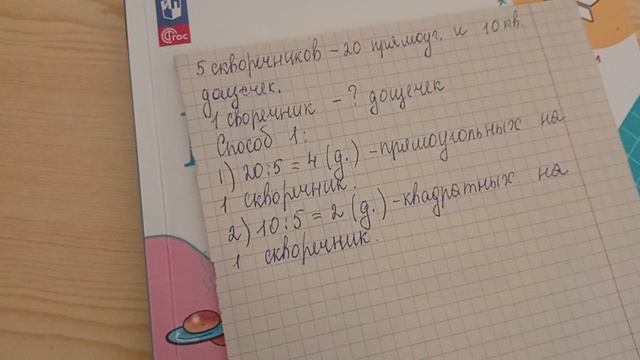 ФГОС
5 скворечников - 20 прямоуг. и 10 кв.
дощечек.
1 своречник - ? дощечек
Способ 1:
1) 20:5 = 4 (д.) - прямоугольных на
1 скворечник.
2) 10:5 = 2 (д.) - квадратных на
1 скворечник.